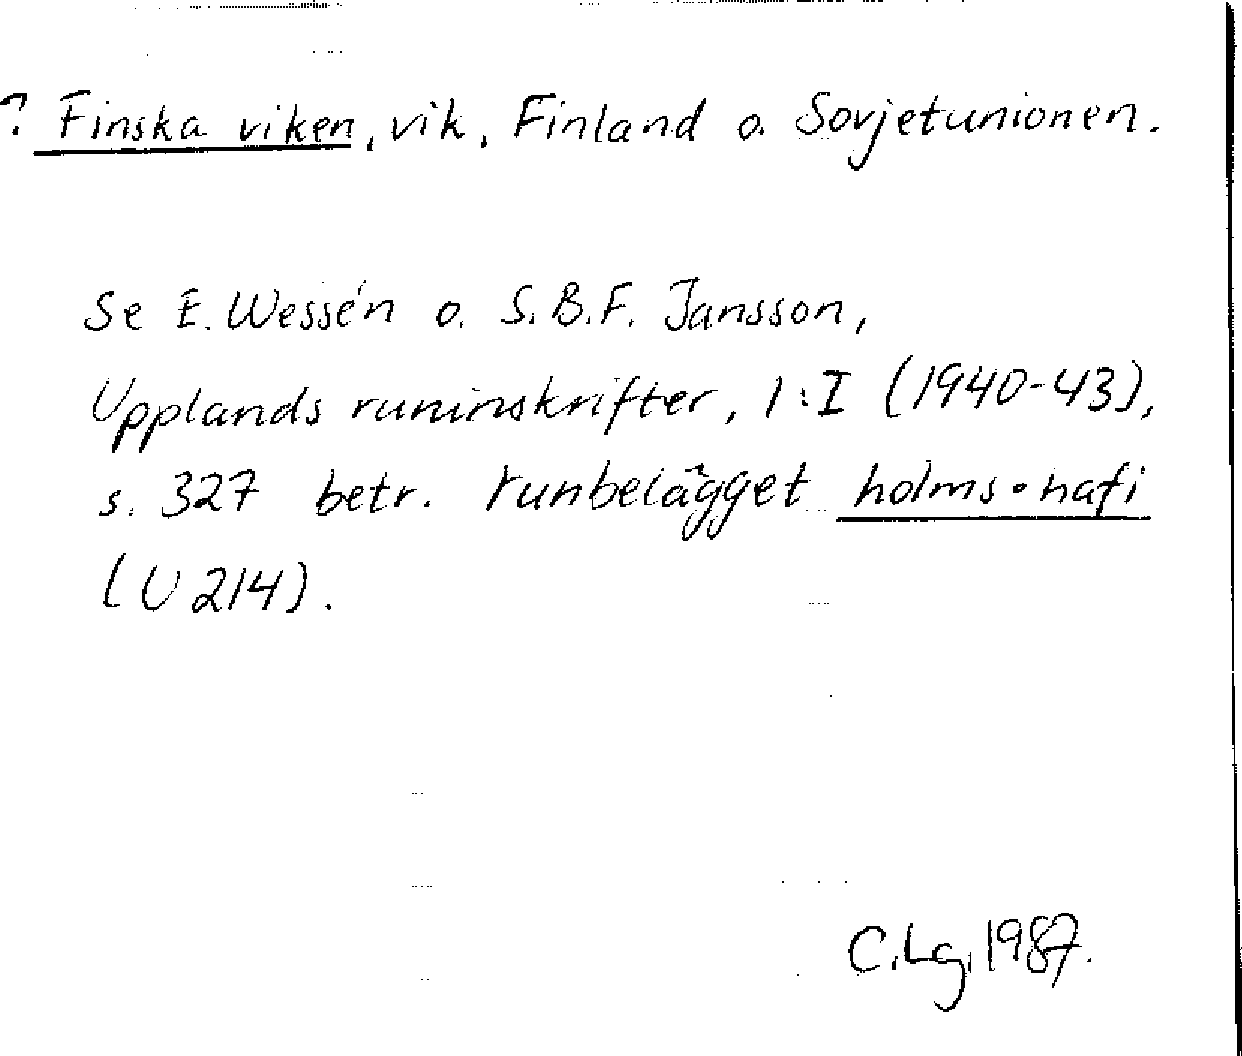 ? Finska viken, vik, Finland o. Sovjetunionen.
Se E. Wessén o. S.B.F. Jansson,
Upplands runinskrifter, 1:I (1940-43),
s. 327 betr. runbelägget holms•hafi
(U 214).
C.Lg. 1987.